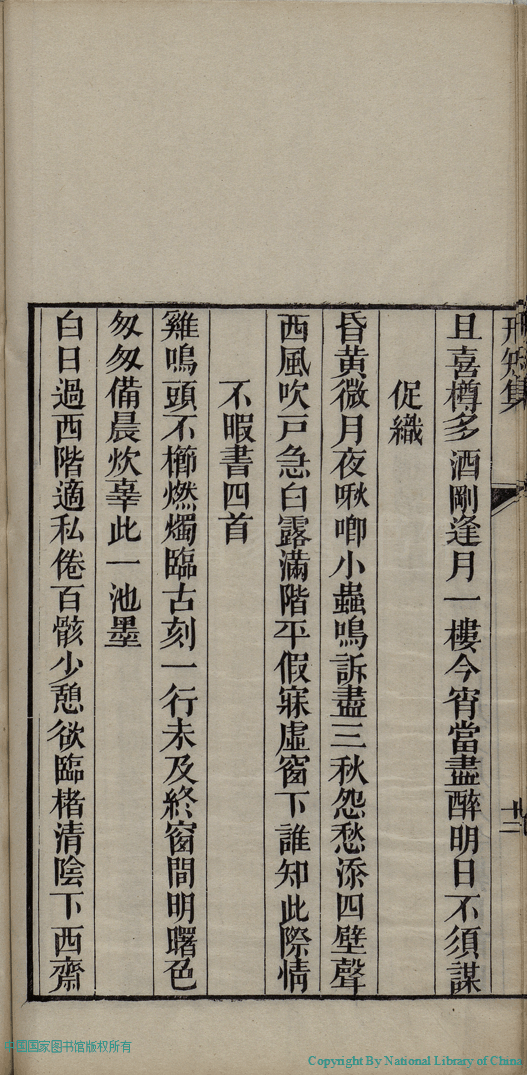 且喜樽多酒剛逢月一樓今宵當盡醉明日不須謀
促織
昏黃微月夜啾唧小蟲鳴訴盡三秋怨愁添四壁聲
西風吹戸急白露滿階平假寐虛窗下誰知此際情
不暇書四首
雞鳴頭不櫛燃燭臨古刻一行未及終窗間明曙色
匆匆備晨炊辜此一池墨
白日過西階適私倦百骸少憩欲臨楮清陰下西齋
中国国家图书馆版权所有
Copyright By National Library of China